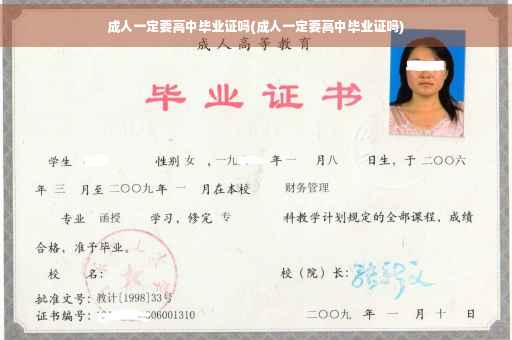 成人一定要高中毕业证吗(成人一定要高中毕业证吗)
成人高等教育
毕业证书
学生 性别 女 ,一九 年 一 月 八 日生,于 二〇〇六
年 三 月至 二〇〇九 年 一 月在本校 财务管理
专业 函授 学习,修完 专 科教学计划规定的全部课程,成绩
合格,准予毕业。
校 名: 校(院)长:
批准文号:教计[1998]33号
证书编号: 06001310 二〇〇九 年 一 月 十 日